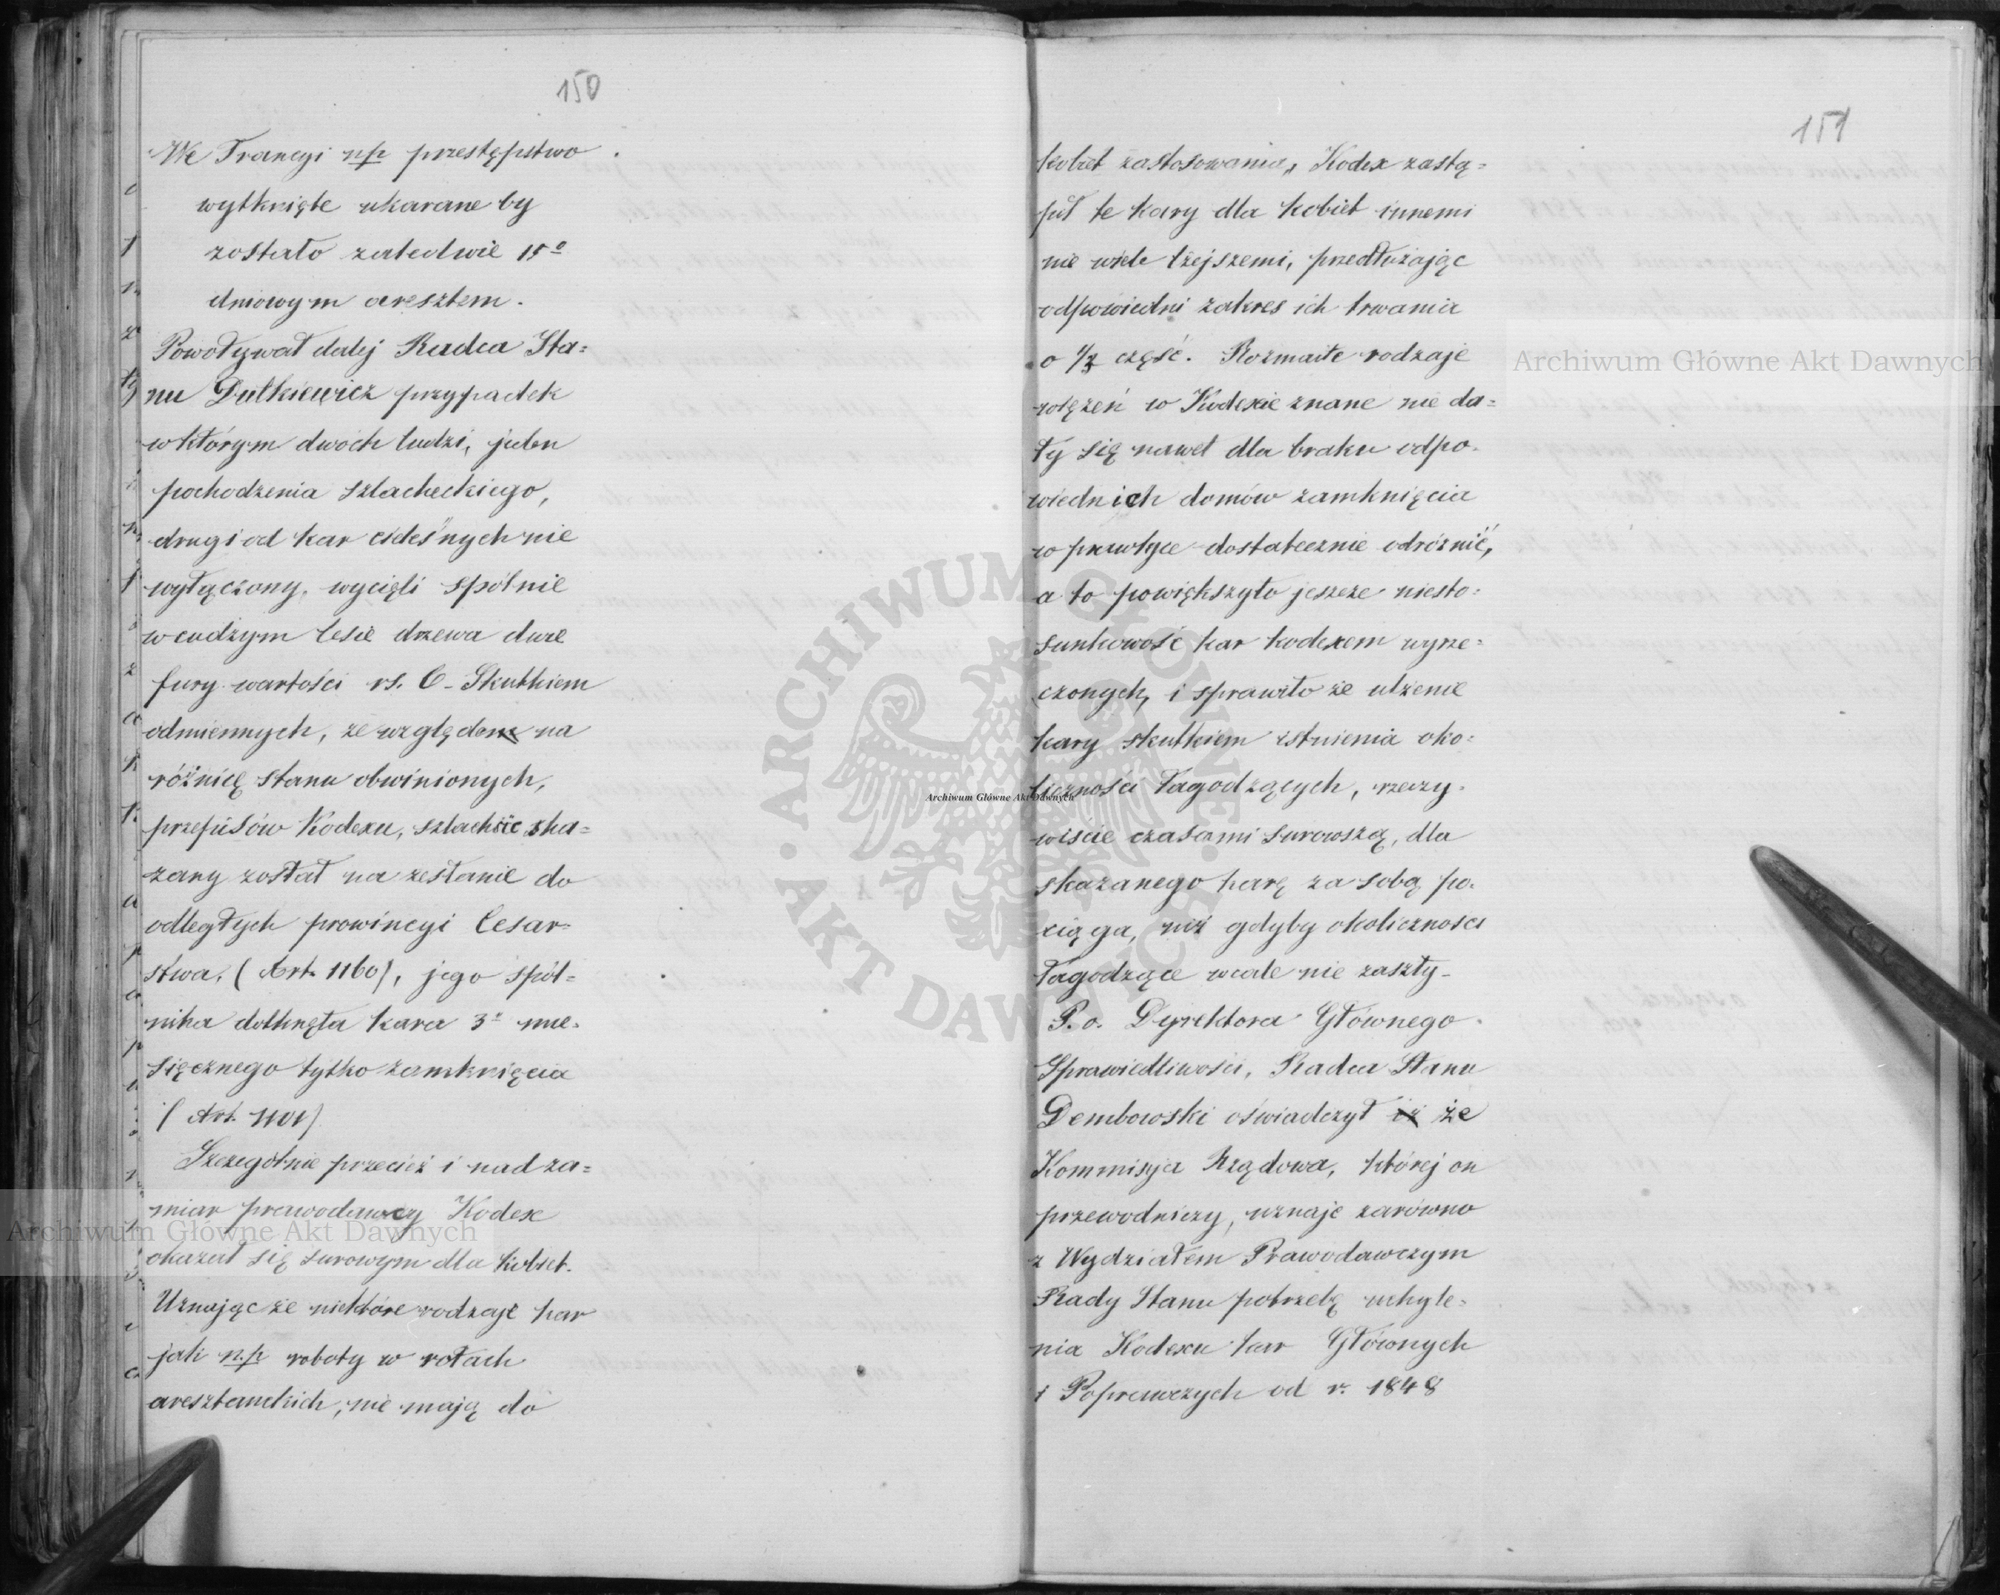 150
We Francyi np przestępstwo
wytknięte ukarane by
zostało zaledwie 15o
dniowym aresztem.
Powoływał dalej Radca Sta=
nu Dutkiewicz przypadek
w którym dwóch ludzi, jeden
pochodzenia szlacheckiego,
drugi od kar cieleśnych nie
wyłączony, wycięli spólnie
w cudzym lesie drzewa dwie
fury wartości rs. 6 – Skutkiem
odmiennych, ze względem na
różnicę stanu obwinionych,
przepisów Kodexu, szlachcic ska=
zany został na zesłanie do
odległych prowincyi Cesar=
stwa, (Art. 1160), jego spól=
nika dotknęła kara 3a mie=
sięcznego tylko zamknięcia
(Art.
Szczególnie przecież i nad za=
miar prawodawcy Kodex
okazał się surowym dla kobiet.
Uznając że niektóre rodzaje kar
jak n.p. roboty w rotach
aresztanckich, nie mają do
151
kobiet zastosowania, Kodex zastą=
pił te kary dla kobiet innemi
nie wiele lżejszemi, przedłużając
odpowiedni zakres ich trwania
o 1/3 część. Rozmaite rodzaje
więzeń w Kodexie znane nie da=
ły się nawet dla braku odpo=
wiednich domów zamknięcia
w praktyce dostatecznie odróżnić,
a to powiększyło jeszcze niesto=
sunkowość kar kodexem wyrze=
czonych, i sprawiło że ulżenie
kary skutkiem istnienia oko=
liczności łagodzących, rzeczy=
wiście czasami surowszą, dla
skazanego karę za sobą po=
ciąga, niż gdyby okoliczności
łagodzące wcale nie zaszły –
P. o. Dyrektora Głównego
Sprawiedliwości, Radca Stanu
Dembowski oświadczył iż że
Kommisyja Rządowa, której on
przewodniczy, uznaje zarówno
z Wydziałem Prawodawczym
Rady Stanu potrzebę uchyle=
nia Kodexu kar Głównych
i Poprawczych od r. 1848
Archiwum Główne Akt Dawnych
Archiwum Główne Akt Dawnych
Archiwum Główne Akt Dawnych
ARCHIWUM GŁÓWNE · AKT DAWNYCH ·